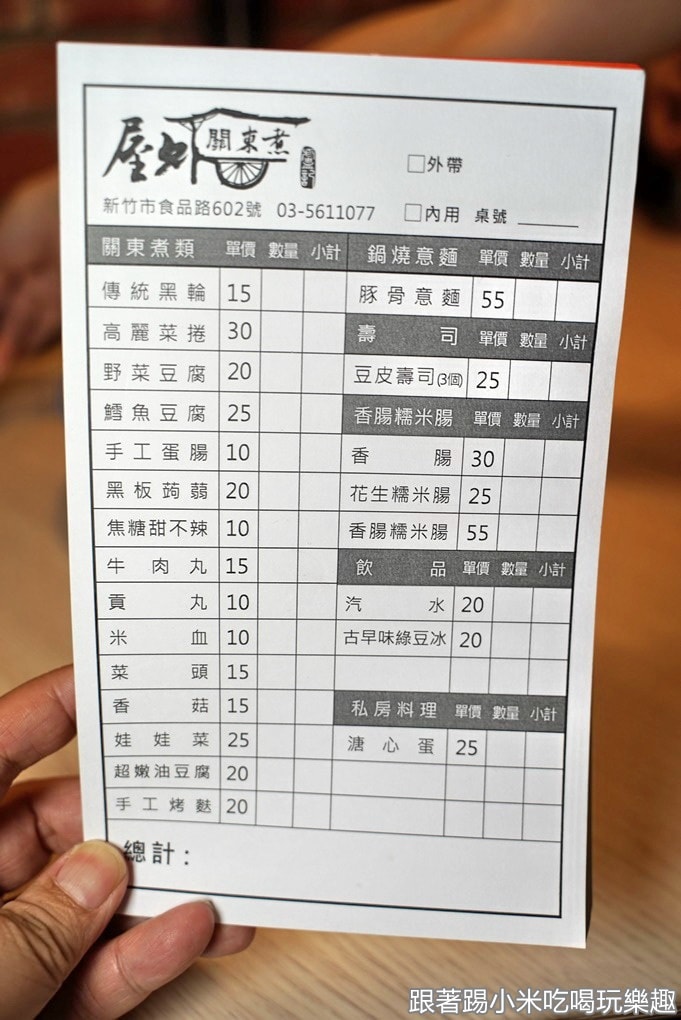 屋外 關東煮
□外帶
新竹市食品路602號 03-5611077
□內用 桌號
關東煮類 單價 數量 小計
傳統黑輪 15
高麗菜捲 30
野菜豆腐 20
鱈魚豆腐 25
手工蛋腸 10
黑板蒟蒻 20
焦糖甜不辣 10
牛肉丸 15
貢丸 10
米血 10
菜頭 15
香菇 15
娃娃菜 25
超嫩油豆腐 20
手工烤麩 20
鍋燒意麵 單價 數量 小計
豚骨意麵 55
壽司 單價 數量 小計
豆皮壽司(3個) 25
香腸糯米腸 單價 數量 小計
香腸 30
花生糯米腸 25
香腸糯米腸 55
飲品 單價 數量 小計
汽水 20
古早味綠豆冰 20
私房料理 單價 數量 小計
溏心蛋 25
總計：
跟著踢小米吃喝玩樂趣